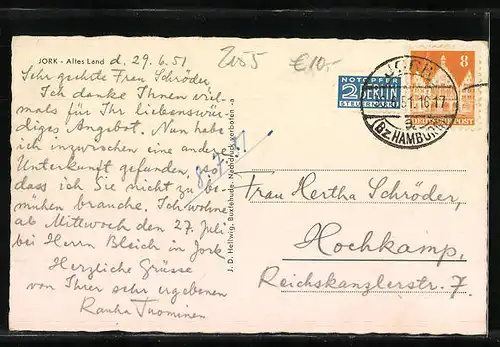 JORK - Altes Land d. 29.6.51
Sehr geehrte Frau Schröder,
Ich danke Ihnen viel-
mals für Ihr liebenswür-
diges Angebot. Nun habe
ich inzwischen eine andere
Unterkunft gefunden, so
dass ich Sie nicht zu be-
mühen brauche. Ich wohne
ab Mittwoch den 27. Juli
bei Herrn Bleich in Jork
Herzliche Grüsse
von Ihrer sehr ergebenen
Rauha Tuominen
J. D. Hellwig, Buxtehude. Nachdruck verboten
2055
€10,-
NOTOPFER
2 BERLIN
STEUERMARKE
8
DEUTSCHE POST
JORK
51.16-17
(Bz HAMBURG)
Frau Hertha Schröder,
Hochkamp,
Reichskanzlerstr. 7.